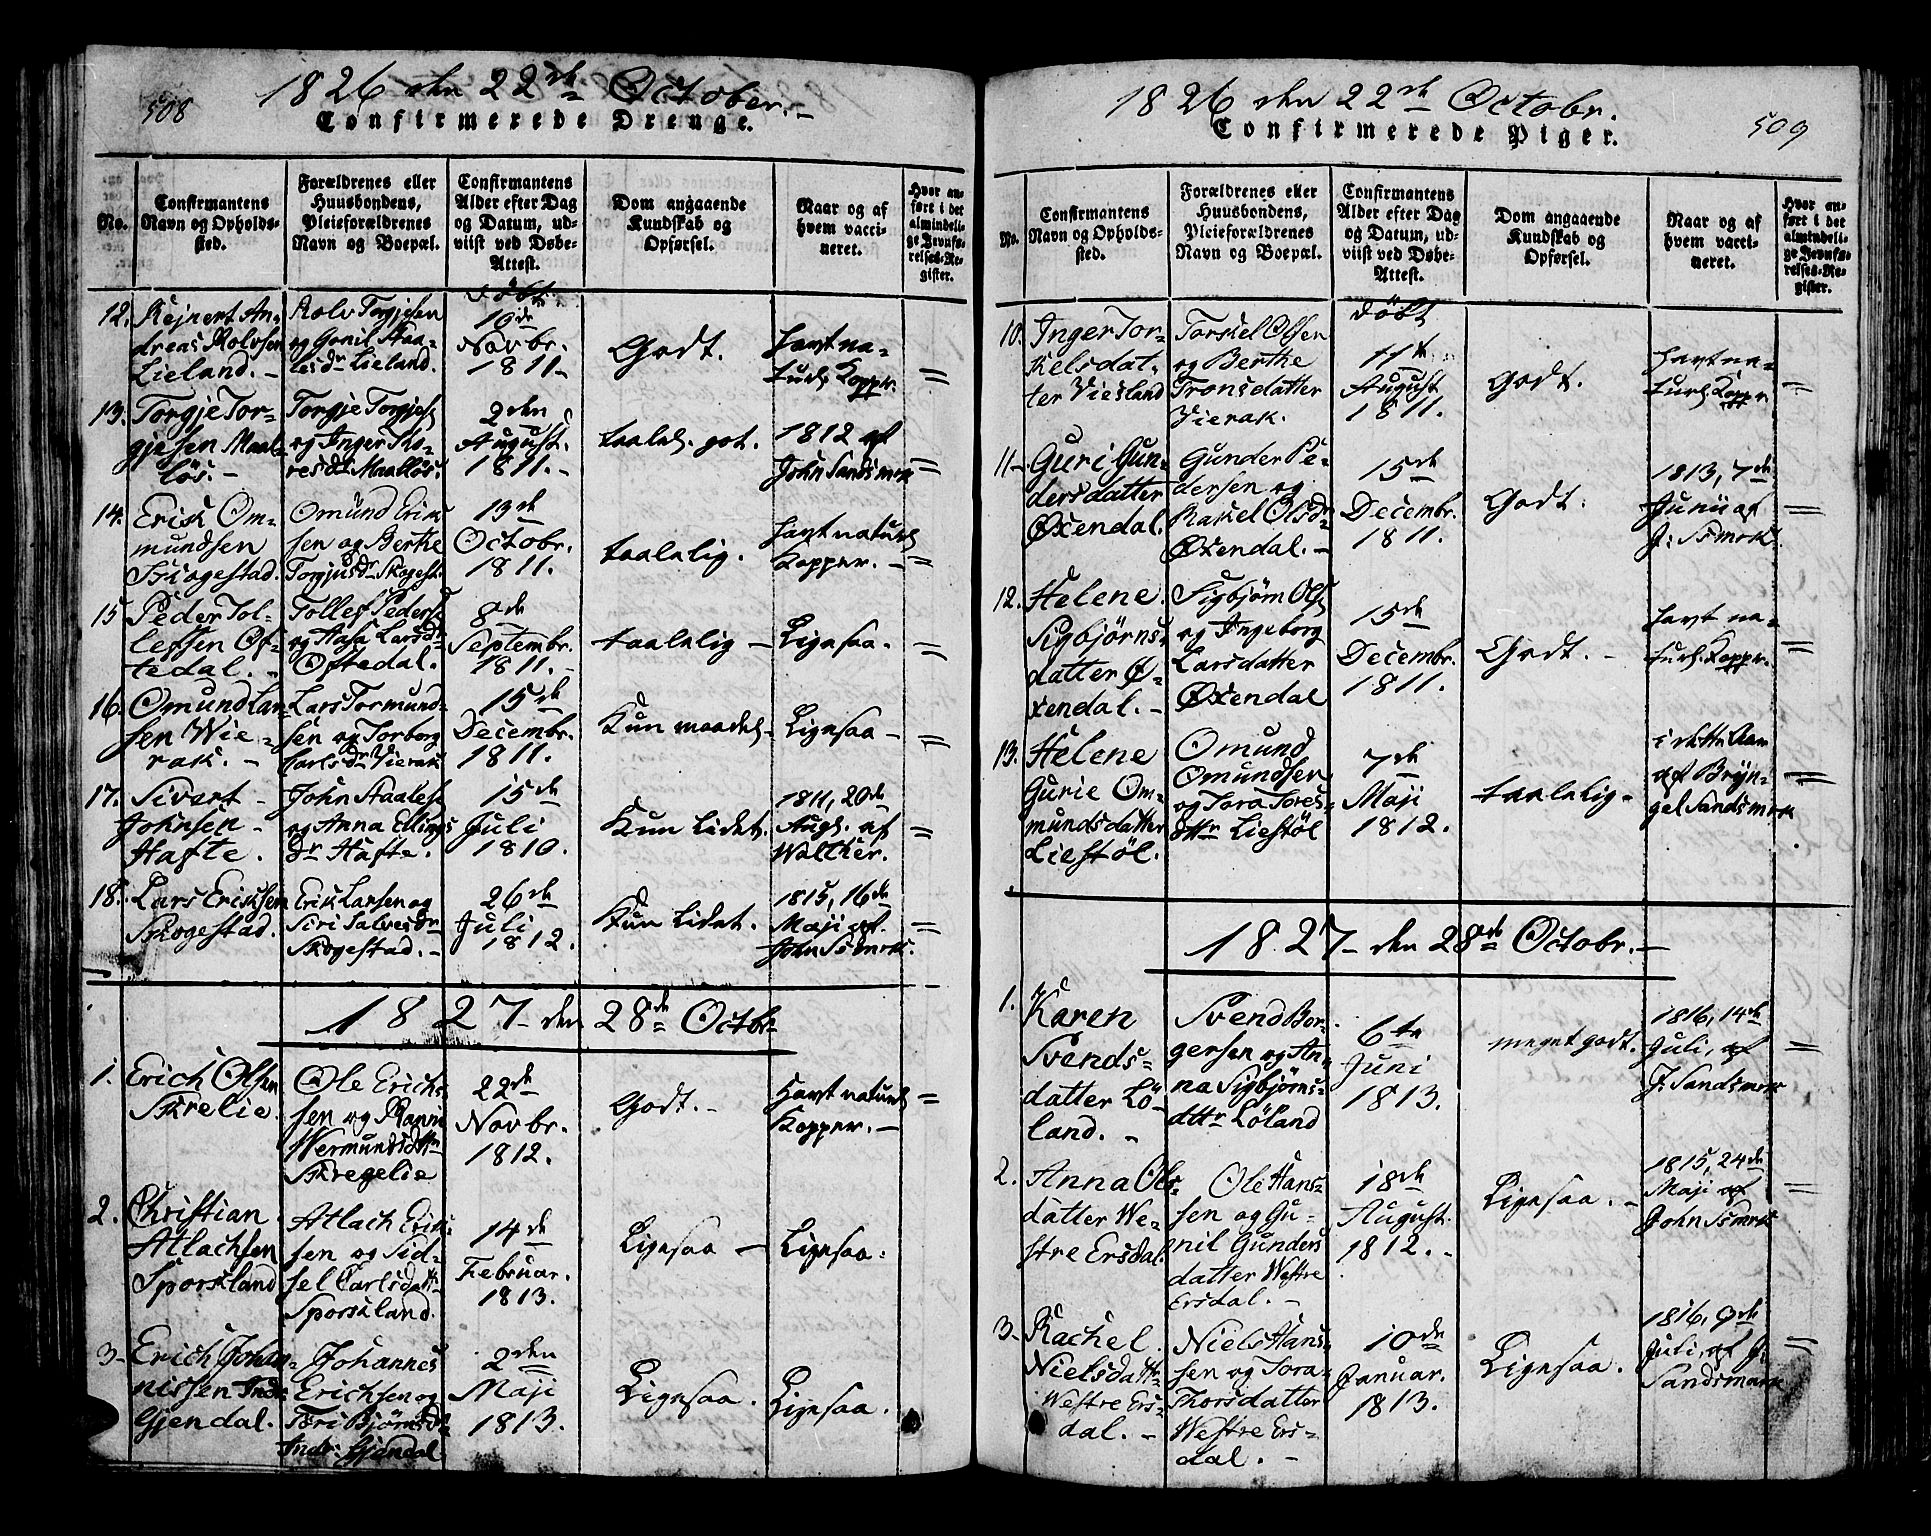 508
1826 den 22de October.
Confirmerede Drenge.
No.
Confirmantens
Navn og Opholds-
sted.
Forældrenes eller
Huusbondens,
Pleieforældrenes
Navn og Boepæl.
Confirmantens
Alder efter Dag
og Datum, ud-
viist ved Døbe-
Attest.
Dom angaaende
Kundskab og
Opførsel.
Naar og af
hvem vacci-
neret.
Hvor an-
ført i det
almindeli-
ge Jevnfø-
relses-Re-
gister.
12. Rejnert An-
dreas Rolvsen
Lieland.
Rolv Torgjesen
og Gonil Staa-
lesdr Lieland.
døbt
10de
Novbr.
1811.
Godt.
Havt na-
turl. Kopper.
=
13. Torgje Tor-
gjesen Maal-
løs.
Torgje Torgjes.
og Inger To-
resdr Maalløs.
2den
August.
1811.
taalel. got.
1812 af
John Sandsmrk
=
14. Erik Om-
mundsen
Skogestad.
Omund Erik-
sen og Berthe
Torgjusdr Skogest.
13de
Octobr.
1811.
taalelig.
Havt naturl.
Kopper.
=
15 Peder Tol-
lefsen Of-
tedal.
Tollef Peders.
og Aasa Larsdr
Oftedal.
8de
Septembr.
1811.
taalelig
Ligesaa.
=
16. Omund Lar-
sen Wie-
rak.
Lars Tormund-
sen og Torborg
Carlsdr Vierak
15de
Decembr.
1811.
Kun maadel.
Ligesaa
=
17. Sivert
Johnsen
Hafte.
John Staales.
og Anna Ellings
dr Hafte.
15de
Juli
1810.
Kun Lidet.
1811, 20de
Augs. af
Walther.
=
18. Lars Eriksen
Skogestad.
Erik Larsen og
Siri Salvesdr
Skogestad.
26de
Juli
1812.
Kun Lidet.
1815, 16de
Maji af
John Ssmrk.
=
1827 den 28de Octbr
1. Erich Olsen
Skrelie.
Ole Erich-
sen og Ranni
Wermundsdttr
Skregelie
22de
Novbr.
1812.
Godt.
Havt naturl.
Kopper.
=
2. Christian
Atlachsen
Sporkland
Atlach Erik-
sen og Sid-
sel Carlsdattr
Sporkland.
14de
Februar.
1813.
Ligesaa
Ligesaa.
3. Erich Johan-
nissen Indr
Gjendal.
Johannes
Erichsen og
Tori Bjørnsdr
Indr: Gjendal
2den
Maji
1813.
Ligesaa.
Ligesaa.
1826 den 22de Octobr.
Confirmerede Piger.
509
No.
Confirmantens
Navn og Opholds-
sted.
Forældrenes eller
Huusbondens,
Pleieforældrenes
Navn og Boepæl.
Confirmantens
Alder efter Dag
og Datum, ud-
viist ved Døbe-
Attest.
Dom angaaende
Kundskab og
Opførsel.
Naar og af
hvem vacci-
neret.
Hvor an-
ført i det
almindeli-
ge Jevnfø-
relses-Re-
gister.
10. Inger Tor-
kelsdat-
ter Viesland
Torkel Olsen
og Berthe
Tronsdatter
Vierak.
døbt
11te
August
1811.
Godt.
Havt na-
turl. Kopper
=
11 Guri Gun-
dersdatter
Øxendal.
Gunder Pe-
dersen og
Rakel Olsdr
Øxendal.
15de
Decembr.
1811.
Godt.
1813, 7de
Junii af
J: Ssmrk.
=
12. Helene
Sigbjørns-
datter Ø-
xendal.
Sigbjørn Ols.
og Ingeborg
Larsdatter
Øxendal
15de
Decembr.
1811.
Godt.
Havt na-
turl. Kopper.
=
13. Helene
Gurie Om-
mundsdatter
Liestøl.
Omund
Omundsen
og Tora Tores-
dttr Liestøl
7de
Maji
1812.
taalelig
i dette Aar
af Bryn-
gel Sandsmrk
=
1827 den 28de Octobr.
1. Karen
Svends-
datter Lø-
land.
Svend Bor-
gersen og An-
na Sigbjørns-
dttr Løland
6te
Juni
1813.
meget godt.
1816, 14de
Juli, af
J: Sandsmrk
=
2. Anna Ols-
datter We-
stre Ersdal.
Ole Hans-
sen og Gu-
nil Gunders
datter Westre
Ersdal.
18de
August.
1812.
Ligesaa.
1815, 24de
Maji af
John Ssmrk
=
3 Rachel
Nielsdattr
Westre Ers-
dal.
Niels Hans-
sen og Tora
Thorsdatter
Westre Ers-
dal.
10de
Januar.
1813.
Ligesaa.
1816, 9de
Juli, af J:
Sandsmark
=